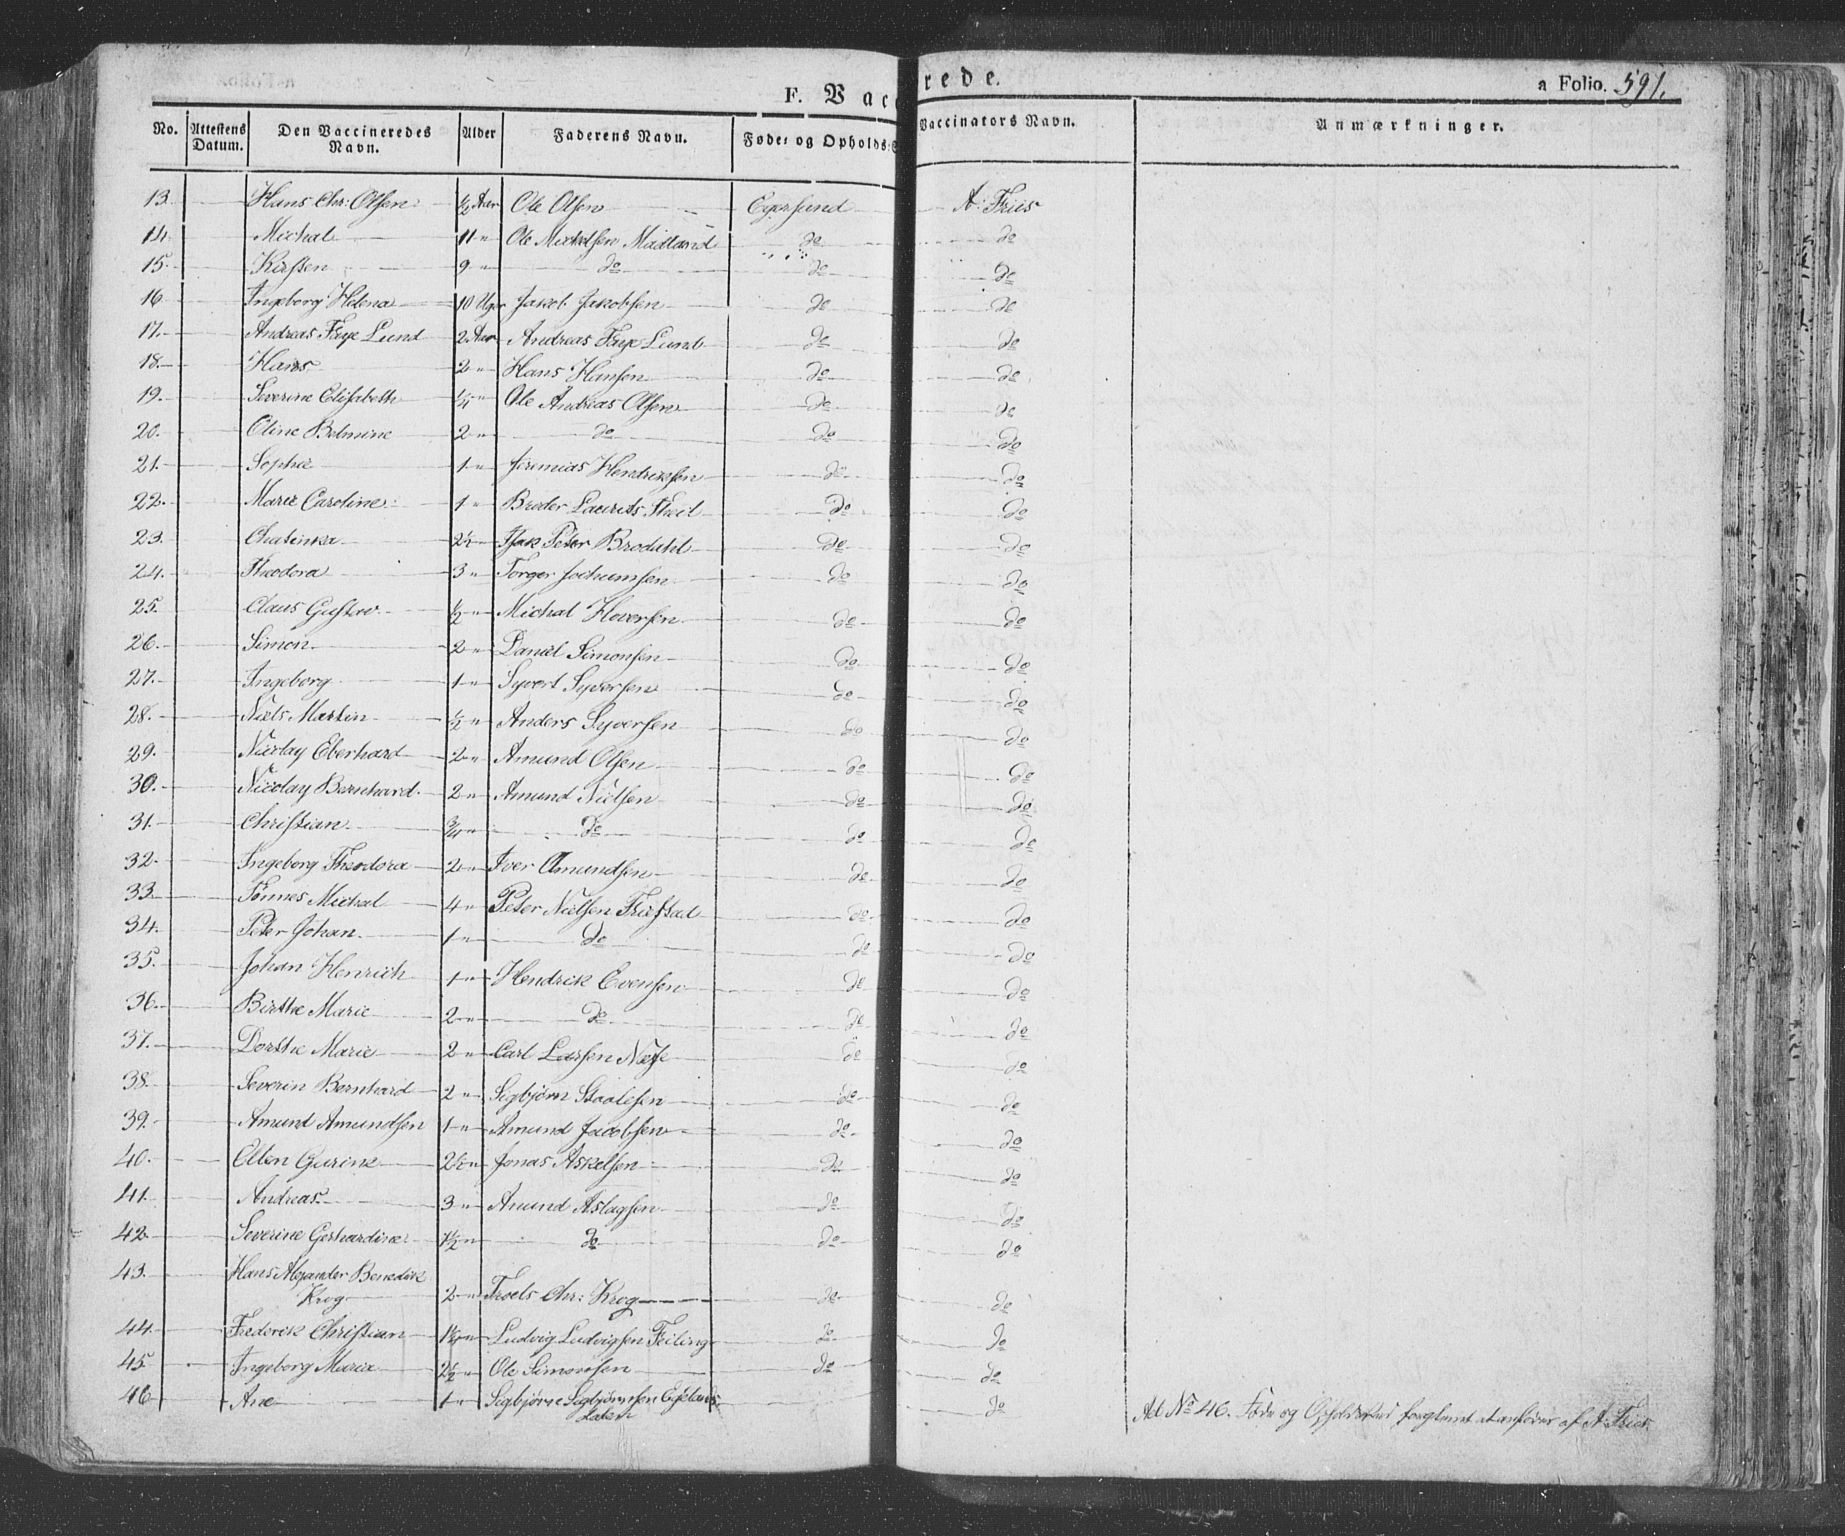 F. Vacc rede.
a Folio. 591.
No. Attestens Datum. Den Vaccineredes Navn. Alder Faderens Navn. Føde- og Opholds-S Vaccinators Navn. Anmærkninger.
13. Hans Chr: Olsen ½ Aar Ole Olsen Egersund A: Friis
14. Michal 11 " Ole Mikkelsen Midland do do
15. Kirsten 9 " do do do
16 Ingeborg Helena 10 Uger Jakob Jakobsen do do
17. Andreas Faye Lund 2 Aar Andreas Faye Lund do do
18. Hans 2 " Hans Hansen do do
19. Severine Elisabeth ¼ " Ole Andreas Olsen do do
20. Oline Bolmine 2 " do do do
21. Sophie 1 " Jeremias Hendriksen do do
22. Marie Caroline 1 " Broder Laurits Theil do do
23. Chatinka 2½ Isak Peter Brodahl do do
24. Theodora 3 " Torger Jochumsen do do
25. Claus Gustav ½ " Michal Hoversen do do
26. Simon 2 " Daniel Simonsen do do
27. Ingeborg 1 " Syvert Syversen do do
28. Niels Martin ½ " Anders Syversen do do
29. Nicolay Eberhard 2 " Amund Olsen do do
30. Nicolay Bernhard 2 " Amund Nielsen do do
31. Christian ¾ " do do do
32. Ingeborg Theodora 2 " Iver Amundsen do do
33. Tønnes Michal 4 " Peter Nielsen Friestad do do
34. Peter Johan 1 " do do do
35. Johan Henrich 1 " Hendrik Evensen do do
36. Birthe Marie 2 " do do do
37. Dorthe Marie 2 " Carl Larsen Næsse do do
38. Severin Bernhard 2 " Sigbjørn Staalesen do do
39. Amund Amundsen 1 " Amund Jacobsen do do
40. Ellen Gurine 2½ " Jonas Askelsen do do
41. Andreas 3 " Anund Aslagsen do do
42. Severine Gerhardine 1½ " do do do
43. Hans Alexander Benedik
Krog 2 " Troels Chr: Krog do do
44. Frederik Christian 1¼ " Ludvig Ludvigsen Feiling do do
45. Ingeborg Maria 2½ " Ole Simonsen do do
46 Ane 1 " Sigbjørn Sigbjørnsen Egelands do Ad No 46. Føde og Opholdssted ei anfører af A: Friis.